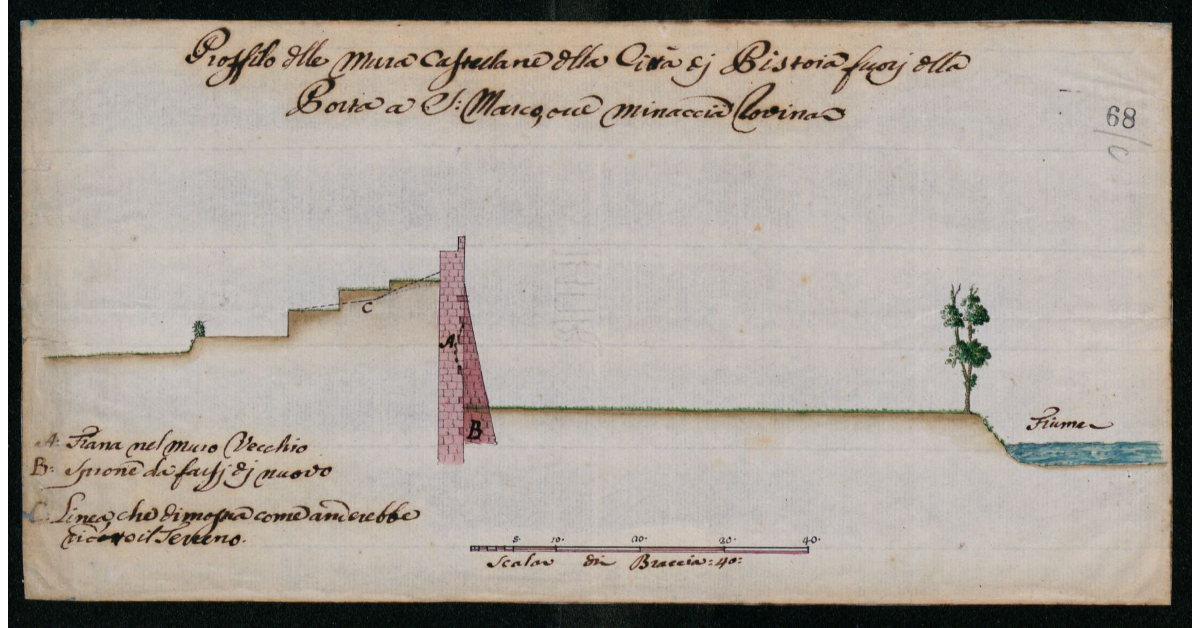 Proffilo dlle Mura Castellane dlla Città di Pistoia fuorj dlla
Porta a S: Marco, oue minaccia Rovina
68
C
A
B
Fiume
A: Frana nel muro Vecchio
B: Sprone da farsj dj nuovo
C: Linea, che dimostra come anderebbe
il Terreno.
5. 10. 20. 30. 40.
Scala di Braccia: 40: